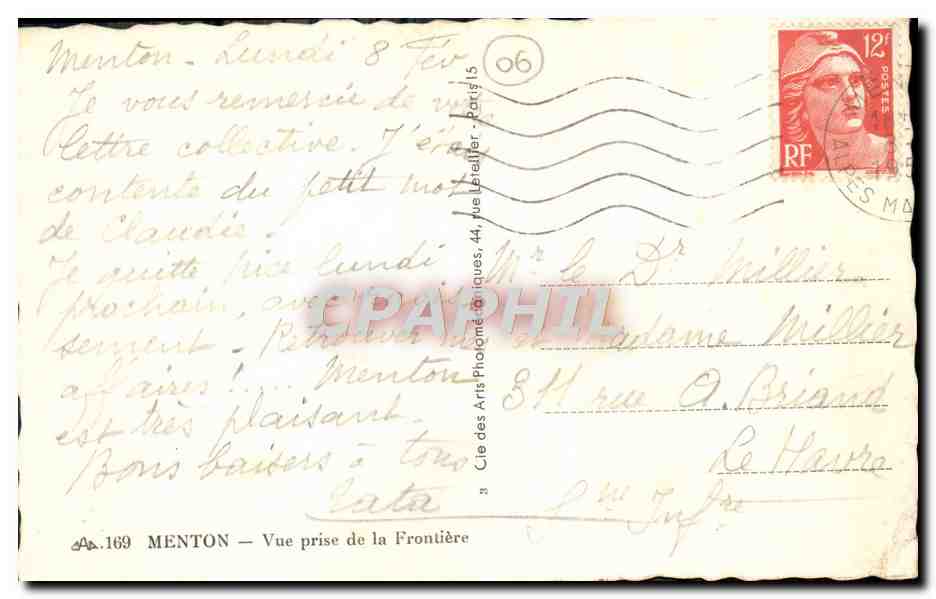 Menton - Lundi 8 Fév
Je vous remercie de vot
lettre collective. J'étai
contente du petit mot
de Claudie.
Je quitte Nice lundi
prochain, avec
sement - Retrouver
affaires !.... Menton
est très plaisant.
Bons baisers à tous
Tata
06
12F
POSTES
RF
ALPES MA
Mr le Dr Millier
et Madame Millier
311 rue A. Briand
Le Havre
Sne Infre
3 Cie des Arts Photomécaniques, 44, rue Letellier - Paris 15
CPAPHIL
CAP. 169 MENTON — Vue prise de la Frontière